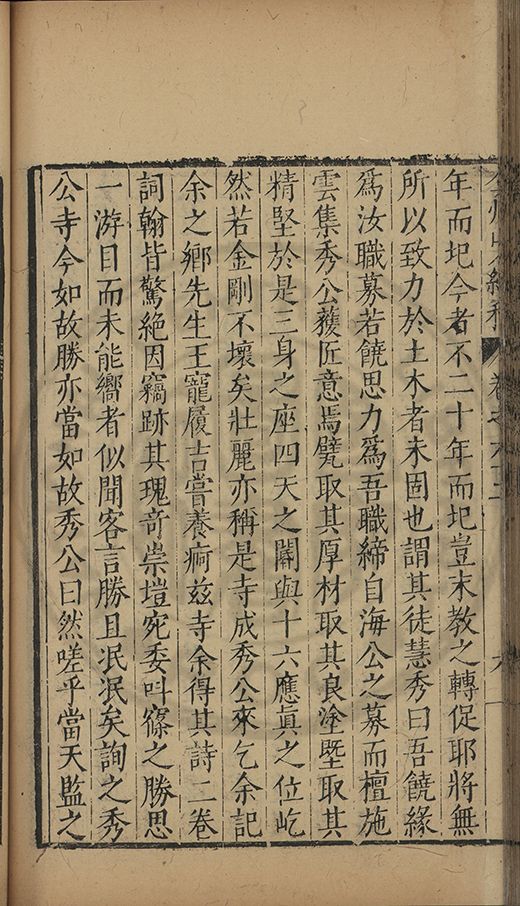 年而圮今者不二十年而圮豈末教之轉促耶將無
所以致力於土木者未固也謂其徒慧秀曰吾饒緣
爲汝職募若饒思力爲吾職締自海公之募而檀施
雲集秀公蕿匠意焉甓取其厚材取其良塗塈取其
精堅於是三身之座四天之闈與十六應眞之位屹
然若金剛不壞矣壯麗亦稱是寺成秀公來乞余記
余之鄉先生王寵履吉嘗養痾兹寺余得其詩二卷
詞翰皆驚絶因竊跡其瑰竒崇塏宛委叫窱之勝思
一游目而未能嚮者似聞客言勝且泯泯矣詢之秀
公寺今如故勝亦當如故秀公曰然嗟乎當天監之